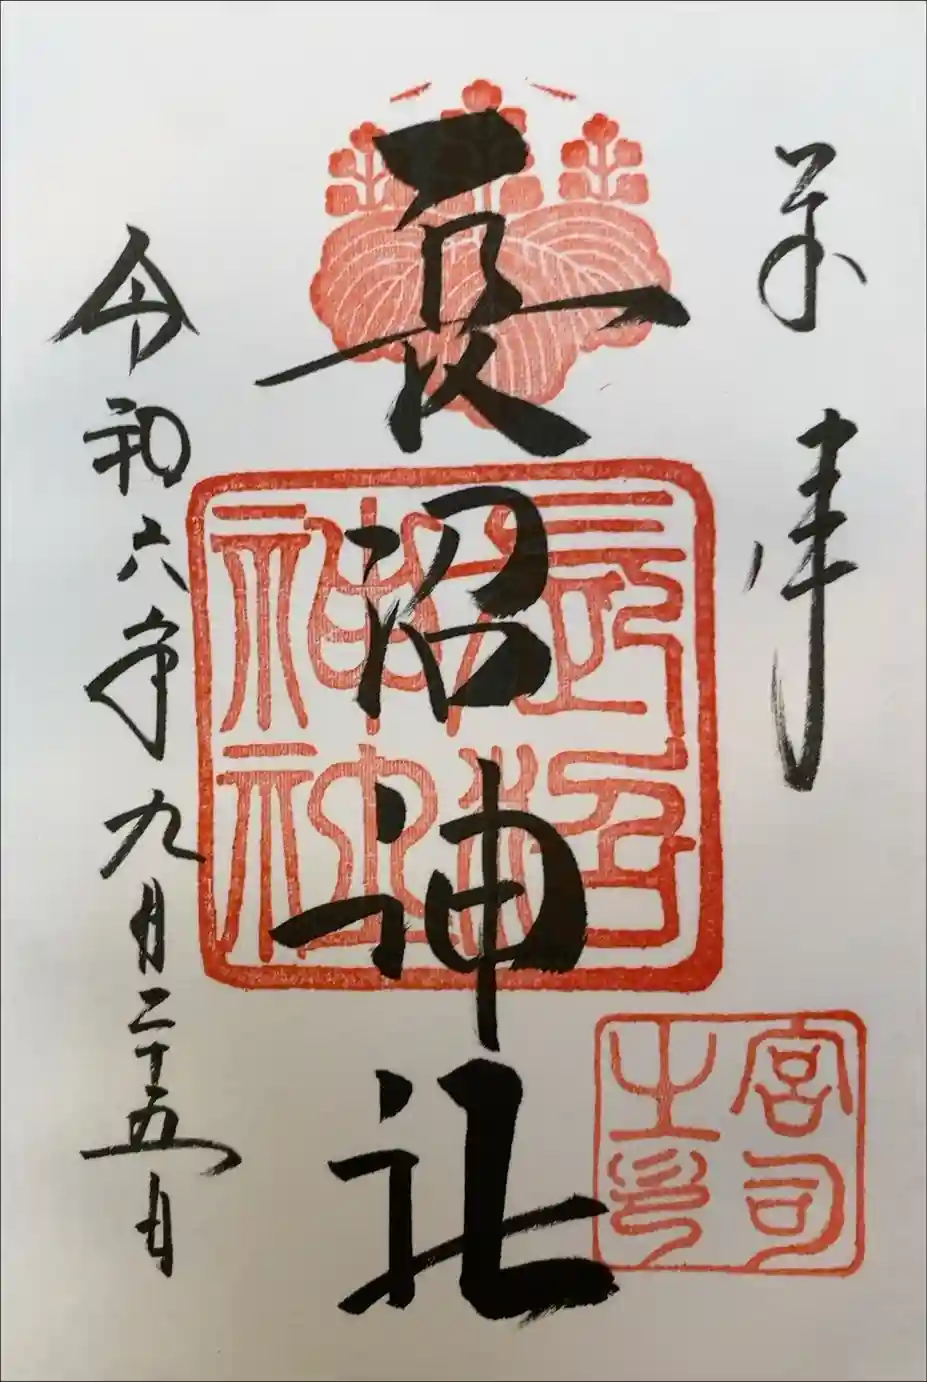 奉拝
長沼神社
令和六年九月二十五日
長沼
神社
宮司
之印